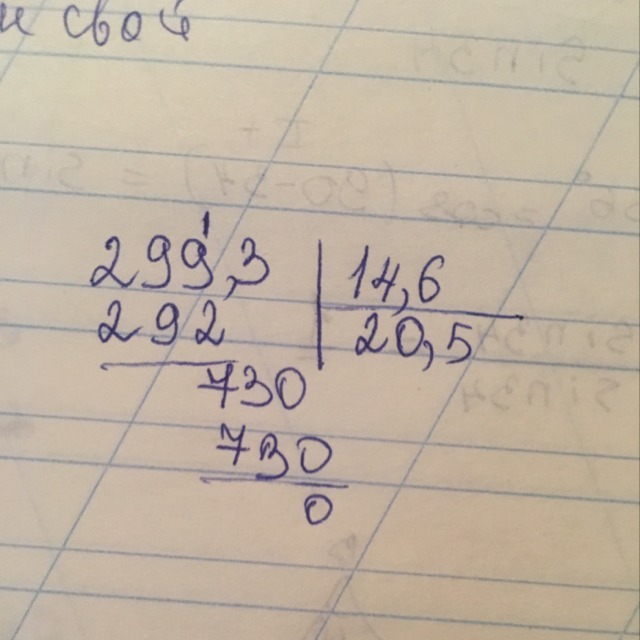 и свой
299,3 | 14,6
292 | 20,5
730
730
0